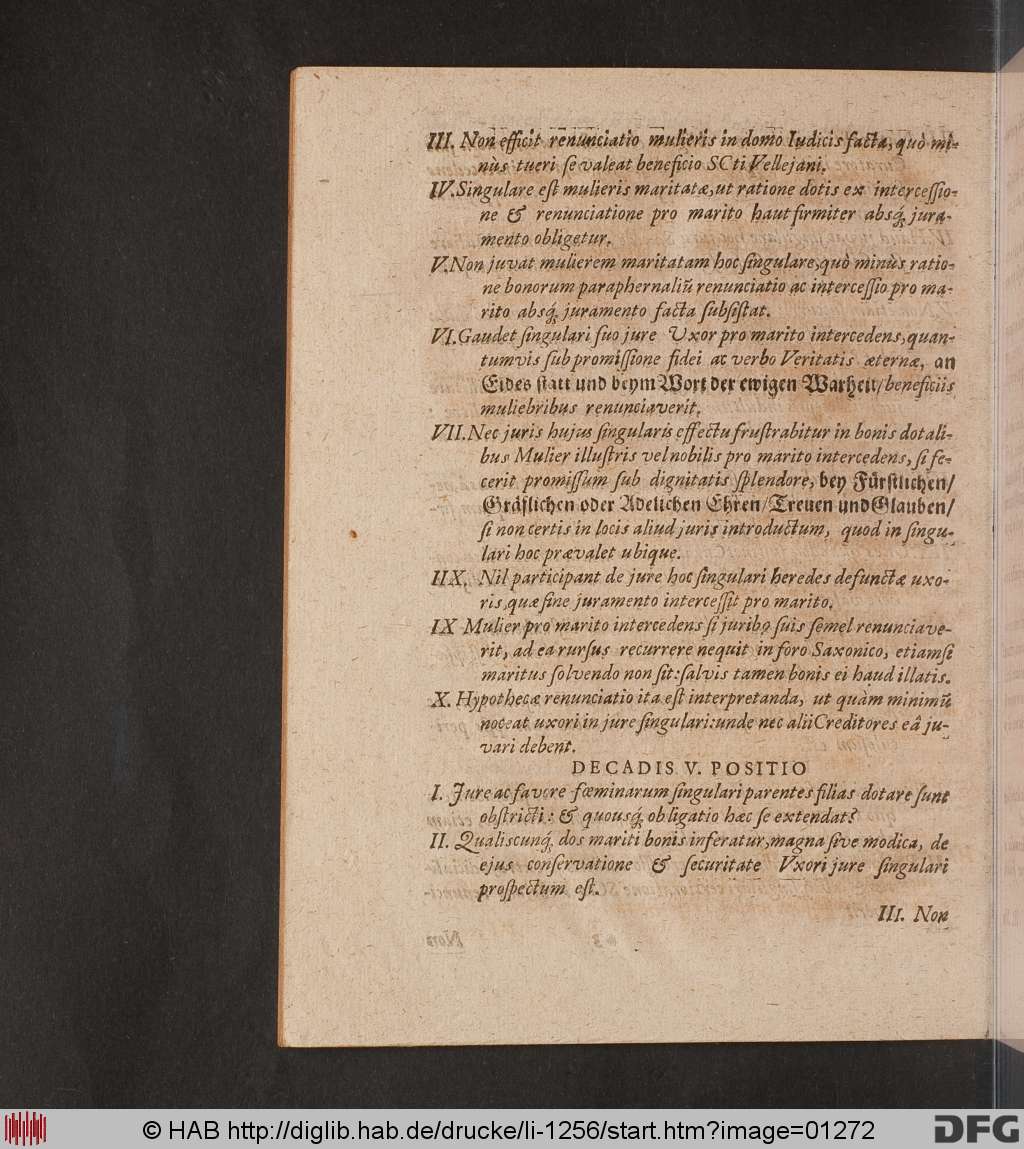 III. Non efficit renunciatio mulieris in domo Iudicis facta, quò mi-
nùs tueri se valeat beneficio SCti Vellejani.
IV. Singulare est mulieris maritatæ, ut ratione dotis ex intercessio-
ne & renunciatione pro marito haut firmiter absq; jura-
mento obligetur.
V. Non juvat mulierem maritatam hoc singulare, quò minùs ratio-
ne bonorum paraphernaliũ renunciatio ac intercessio pro ma-
rito absq; juramento facta subsistat.
VI. Gaudet singulari suo jure Uxor pro marito intercedens, quan-
tumvis sub promissione fidei ac verbo Veritatis æternæ, an
Eides statt und beym Wort der ewigen Warheit/ beneficiis
muliebribus renunciaverit.
VII. Nec juris hujus singularis effectu frustrabitur in bonis dotali-
bus Mulier illustris vel nobilis pro marito intercedens, si fe-
cerit promissum sub dignitatis splendore, bey Fürstlichen/
Gräflichen oder Adelichen Ehren/ Treuen und Glauben/
si non certis in locis aliud juris introductum, quod in singu-
lari hoc prævalet ubique.
IIX. Nil participant de jure hoc singulari heredes defunctæ uxo-
ris, quæ sine juramento intercessit pro marito.
IX Mulier pro marito intercedens si juribꝰ suis semel renunciave-
rit, ad ea rursus recurrere nequit in foro Saxonico, etiamsi
maritus solvendo non sit: salvis tamen bonis ei haud illatis.
X. Hypothecæ renunciatio ita est interpretanda, ut quàm minimũ
noceat uxori in jure singulari: unde nec alii Creditores eâ ju-
vari debent.
DECADIS V. POSITIO
I. Jure ac favore fœminarum singulari parentes filias dotare sunt
obstricti: & quousq; obligatio hæc se extendat?
II. Qualiscunq; dos mariti bonis inferatur, magna sive modica, de
ejus conservatione & securitate Vxori jure singulari
prospectum est.
III. Non
© HAB http://diglib.hab.de/drucke/li-1256/start.htm?image=01272
DFG